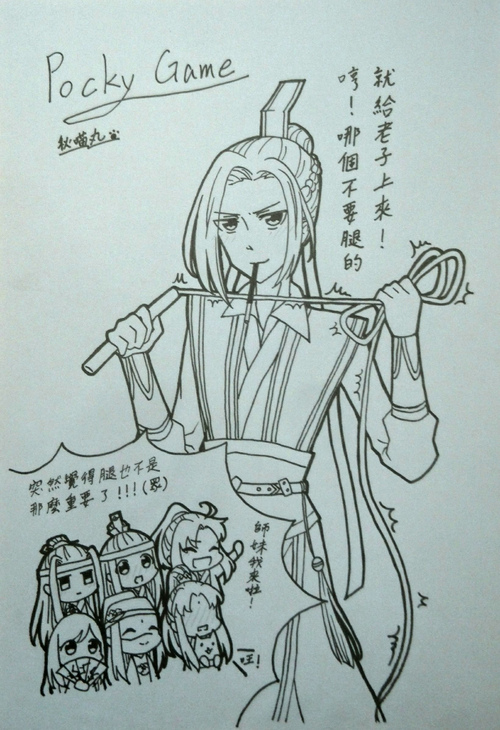 Pocky Game
喵丸
哼!哪個不要腿的
就給老子上來!
突然覺得腿也不是
那麼重要了!!!(眾)
師妹我來啦!
汪!